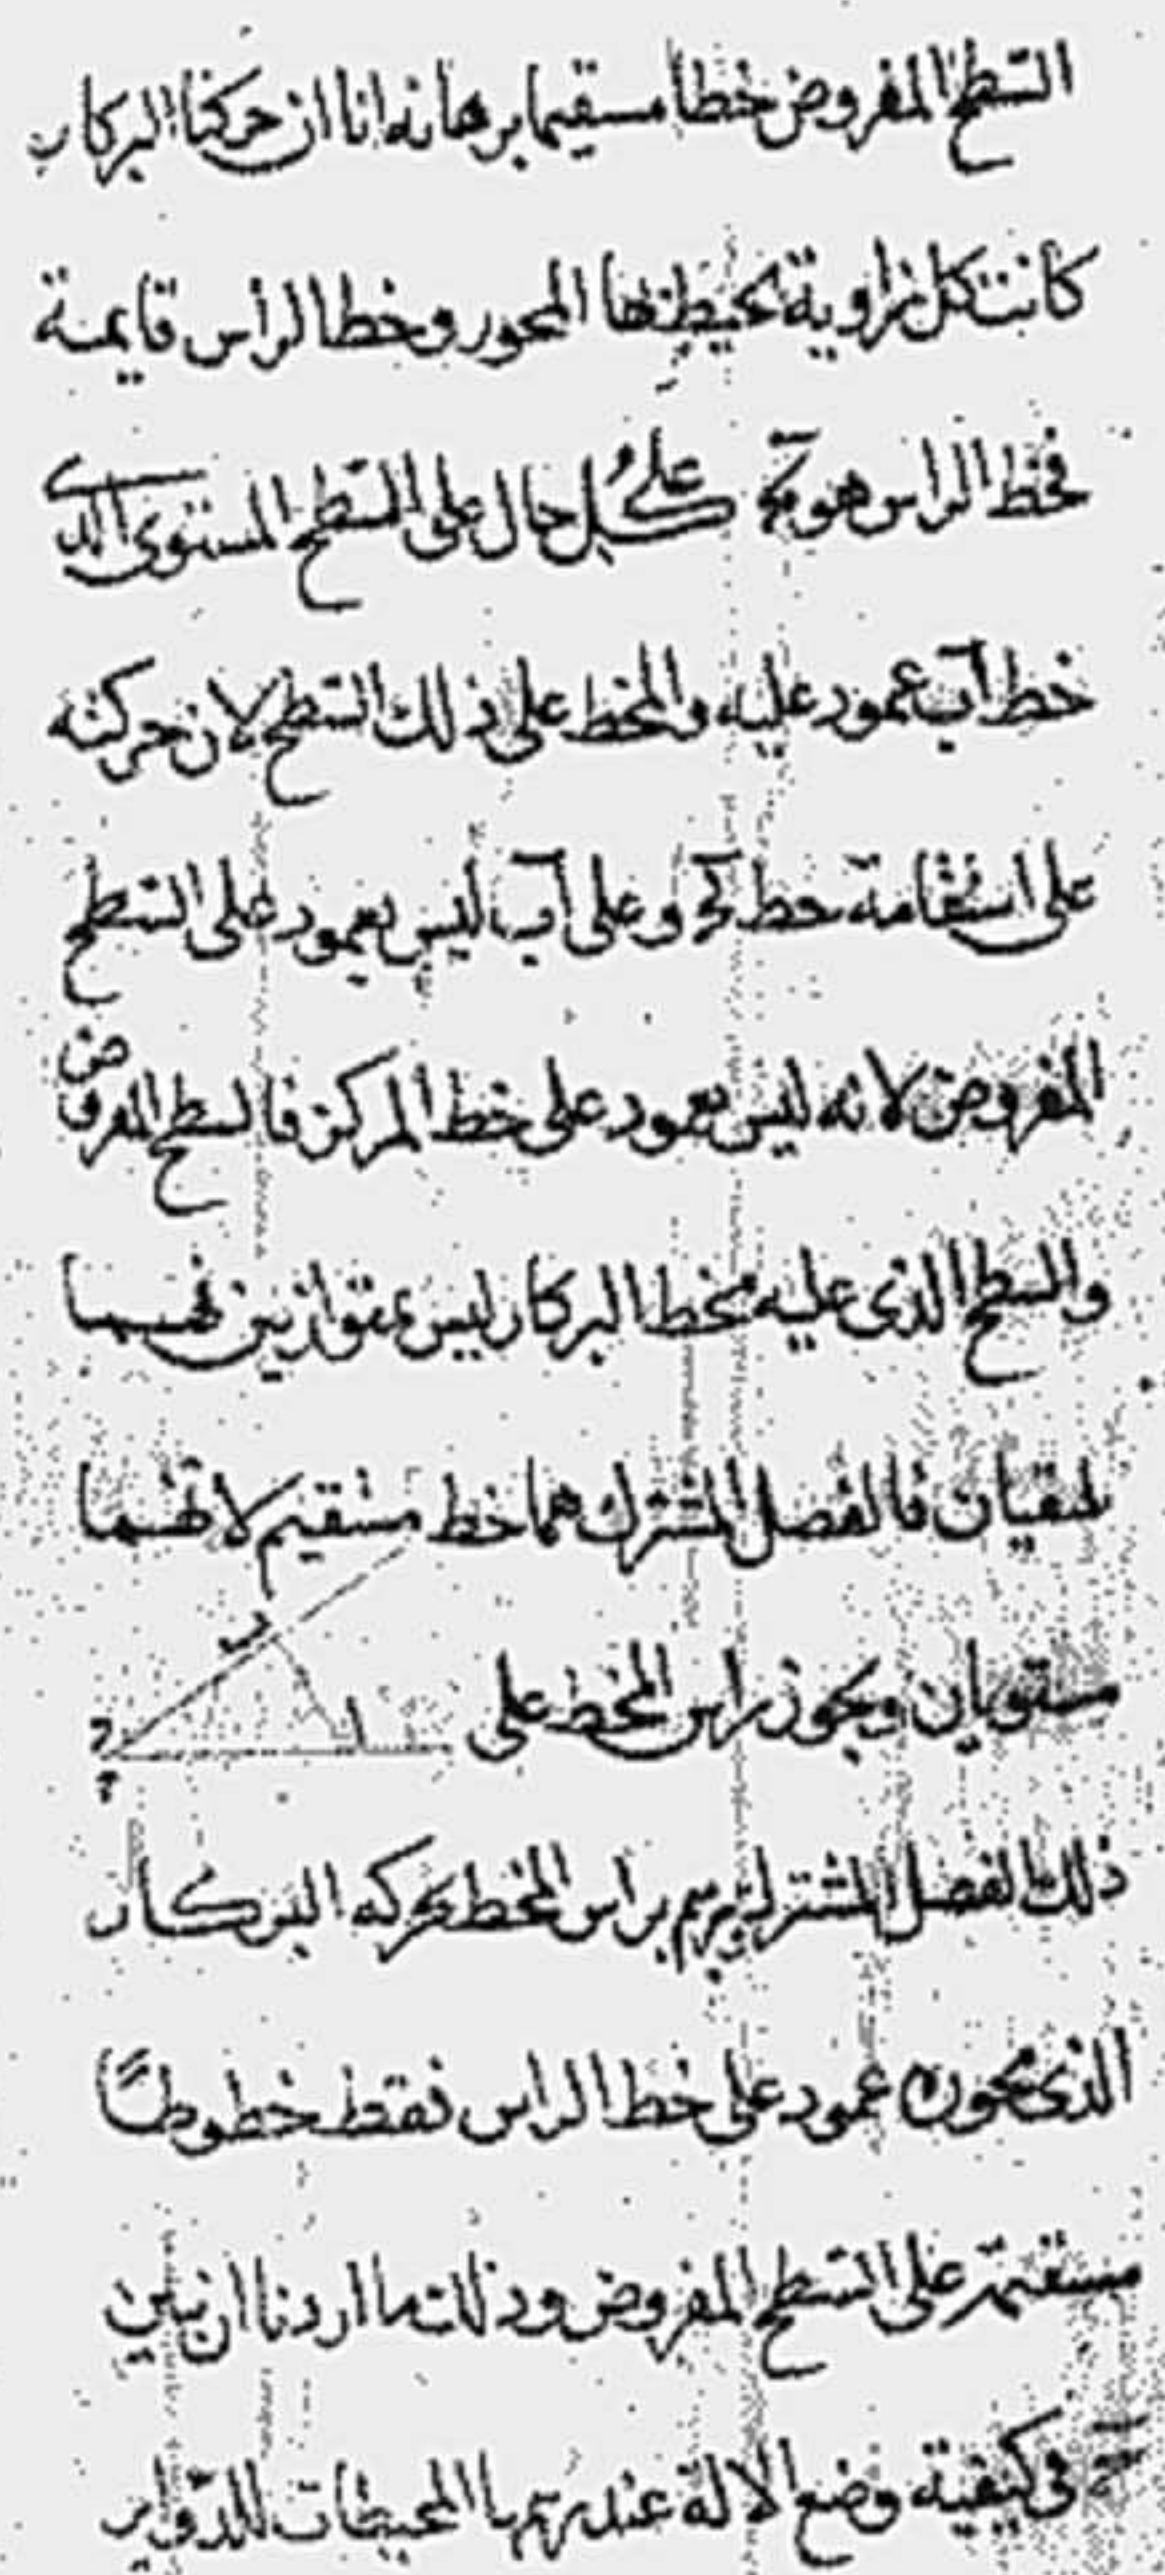 السّطح المفروض خطا مستقيما برهانه انا ان حركنا البركار
كانت كل زاوية تحيط بها المحور وخط الراس قايمة
فخط الراس هو على كل حال على السّطح المستوى الذى
خط اب عمود عليه والمخط على ذلك السّطح لان حركته
على استقامة خط وعلى اب ليس بعمود على السّطح
المفروض لانه ليس بعمود على خط المركز فالسطح المفروض
والسطح الذى عليه مخط البركار ليس بمتوازيين فهما
ملتقيان فالفصل المشترك لهما خط مستقيم لانهما
مستويان ويجوز راس المخط على
ب
ا
ح
ذلك الفصل المشترك ويرسم براس المخط بحركه البركار
الذى محوره عمود على خط الراس فقط خطوطاً
مستقيمة على السّطح المفروض وذلك ما اردنا ان نبين
فى كيفية وضع الالة عند رسمها المحيطات للدّواير